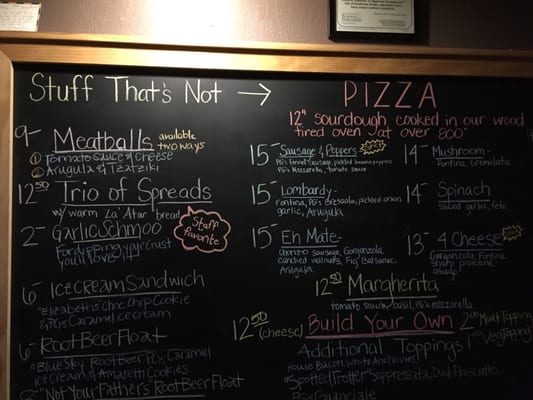 Stuff That's Not →
9- Meatballs available two ways
① Tomato sauce & Cheese
② Arugula & Tzatziki
12.50 Trio of Spreads
w/ warm Za'Atar bread
Staff favorite
2- Garlic Schmoo
For dipping your crust
you'll love it
6- Ice cream Sandwich
"Elizabeth's Choc Chip Cookie
& PG's Caramel Ice cream
6- Root Beer Float
"Blue Sky Root Beer PG's Caramel
Ice Cream & Amaretti Cookies
"Not Your Father's" Root Beer Float
PIZZA
12" sourdough cooked in our wood
fired oven at over 800°
15- Sausage & Peppers
PG's Fennel Sausage, pickled banana peppers
PG's Mozzarella, tomato sauce
15- Lombardy-
Fontina, PG's Bresaola, pickled onion
garlic, Arugula
15- Eh Mate-
Chorizo Sausage, Gorgonzola,
candied walnuts, Fig Balsamic,
Arugula
14- Mushroom-
Fontina, Gremolata
14- Spinach
Sliced garlic, feta
13- 4 Cheese
Gorgonzola, Fontina
Sharp provolone,
asiago
12.50 Margherita
tomato sauce, basil, PG's mozzarella
12.50 (cheese) Build Your Own
2.00 Meat Topping
1.00 Veg Topping
Additional Toppings
House Bacon, White Anchovies
"Spotted Trotter" Soppressata, Duck Prosciutto,
PG's Guanciale